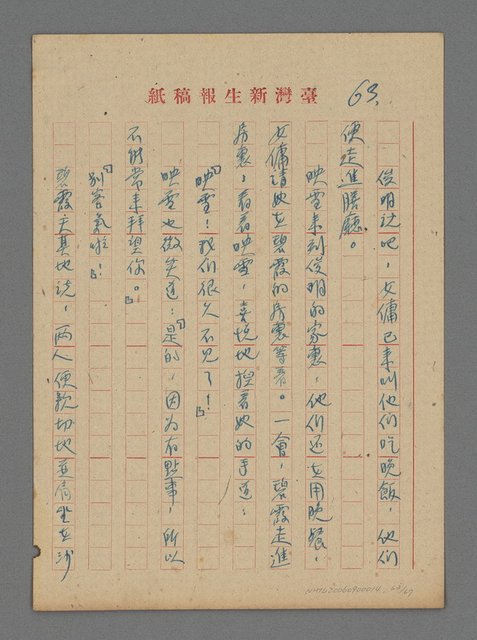 紙稿報生新灣臺
63.
俊明說吧，女傭已來叫他們吃晚飯，他們
便走進膳廳。
映雪來到俊明的家裏，他們還在用晚餐，
女傭請她在碧霞的房裏等着。一會，碧霞走進
房裏，看看映雪，喜悅地握着她的手道：
「映雪！我們很久不見了！」
映雪也微笑道：「是的，因為有點事，所以
不能常來拜望你。」
「別客氣啦！」
碧霞夫其地說，兩人便親切地並肩坐在沙
NMTL20060900014
63/67